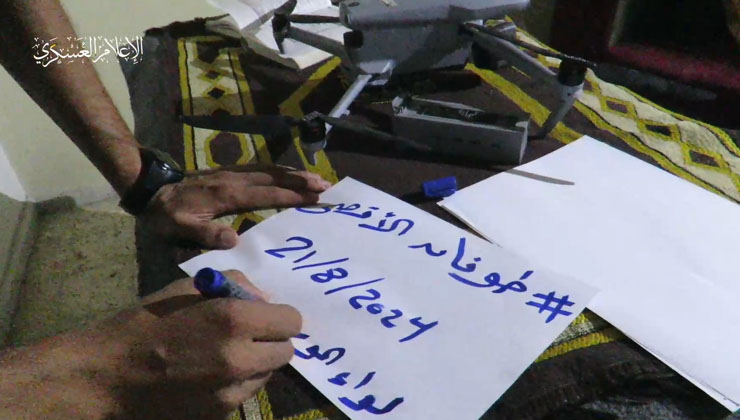 الإعلام العسكري
#طوفان الأقصى
21/8/2024
لواء